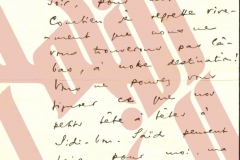 soir, pour
Combien je regrette vive-
ment que nous ne
vous trouverons pas là-
bas, à notre destination!
Vous ne pouvez vous
figurer ce que nos
petits tête à têtes à
Sidi-bou-Saïd peuvent
pour moi, ma